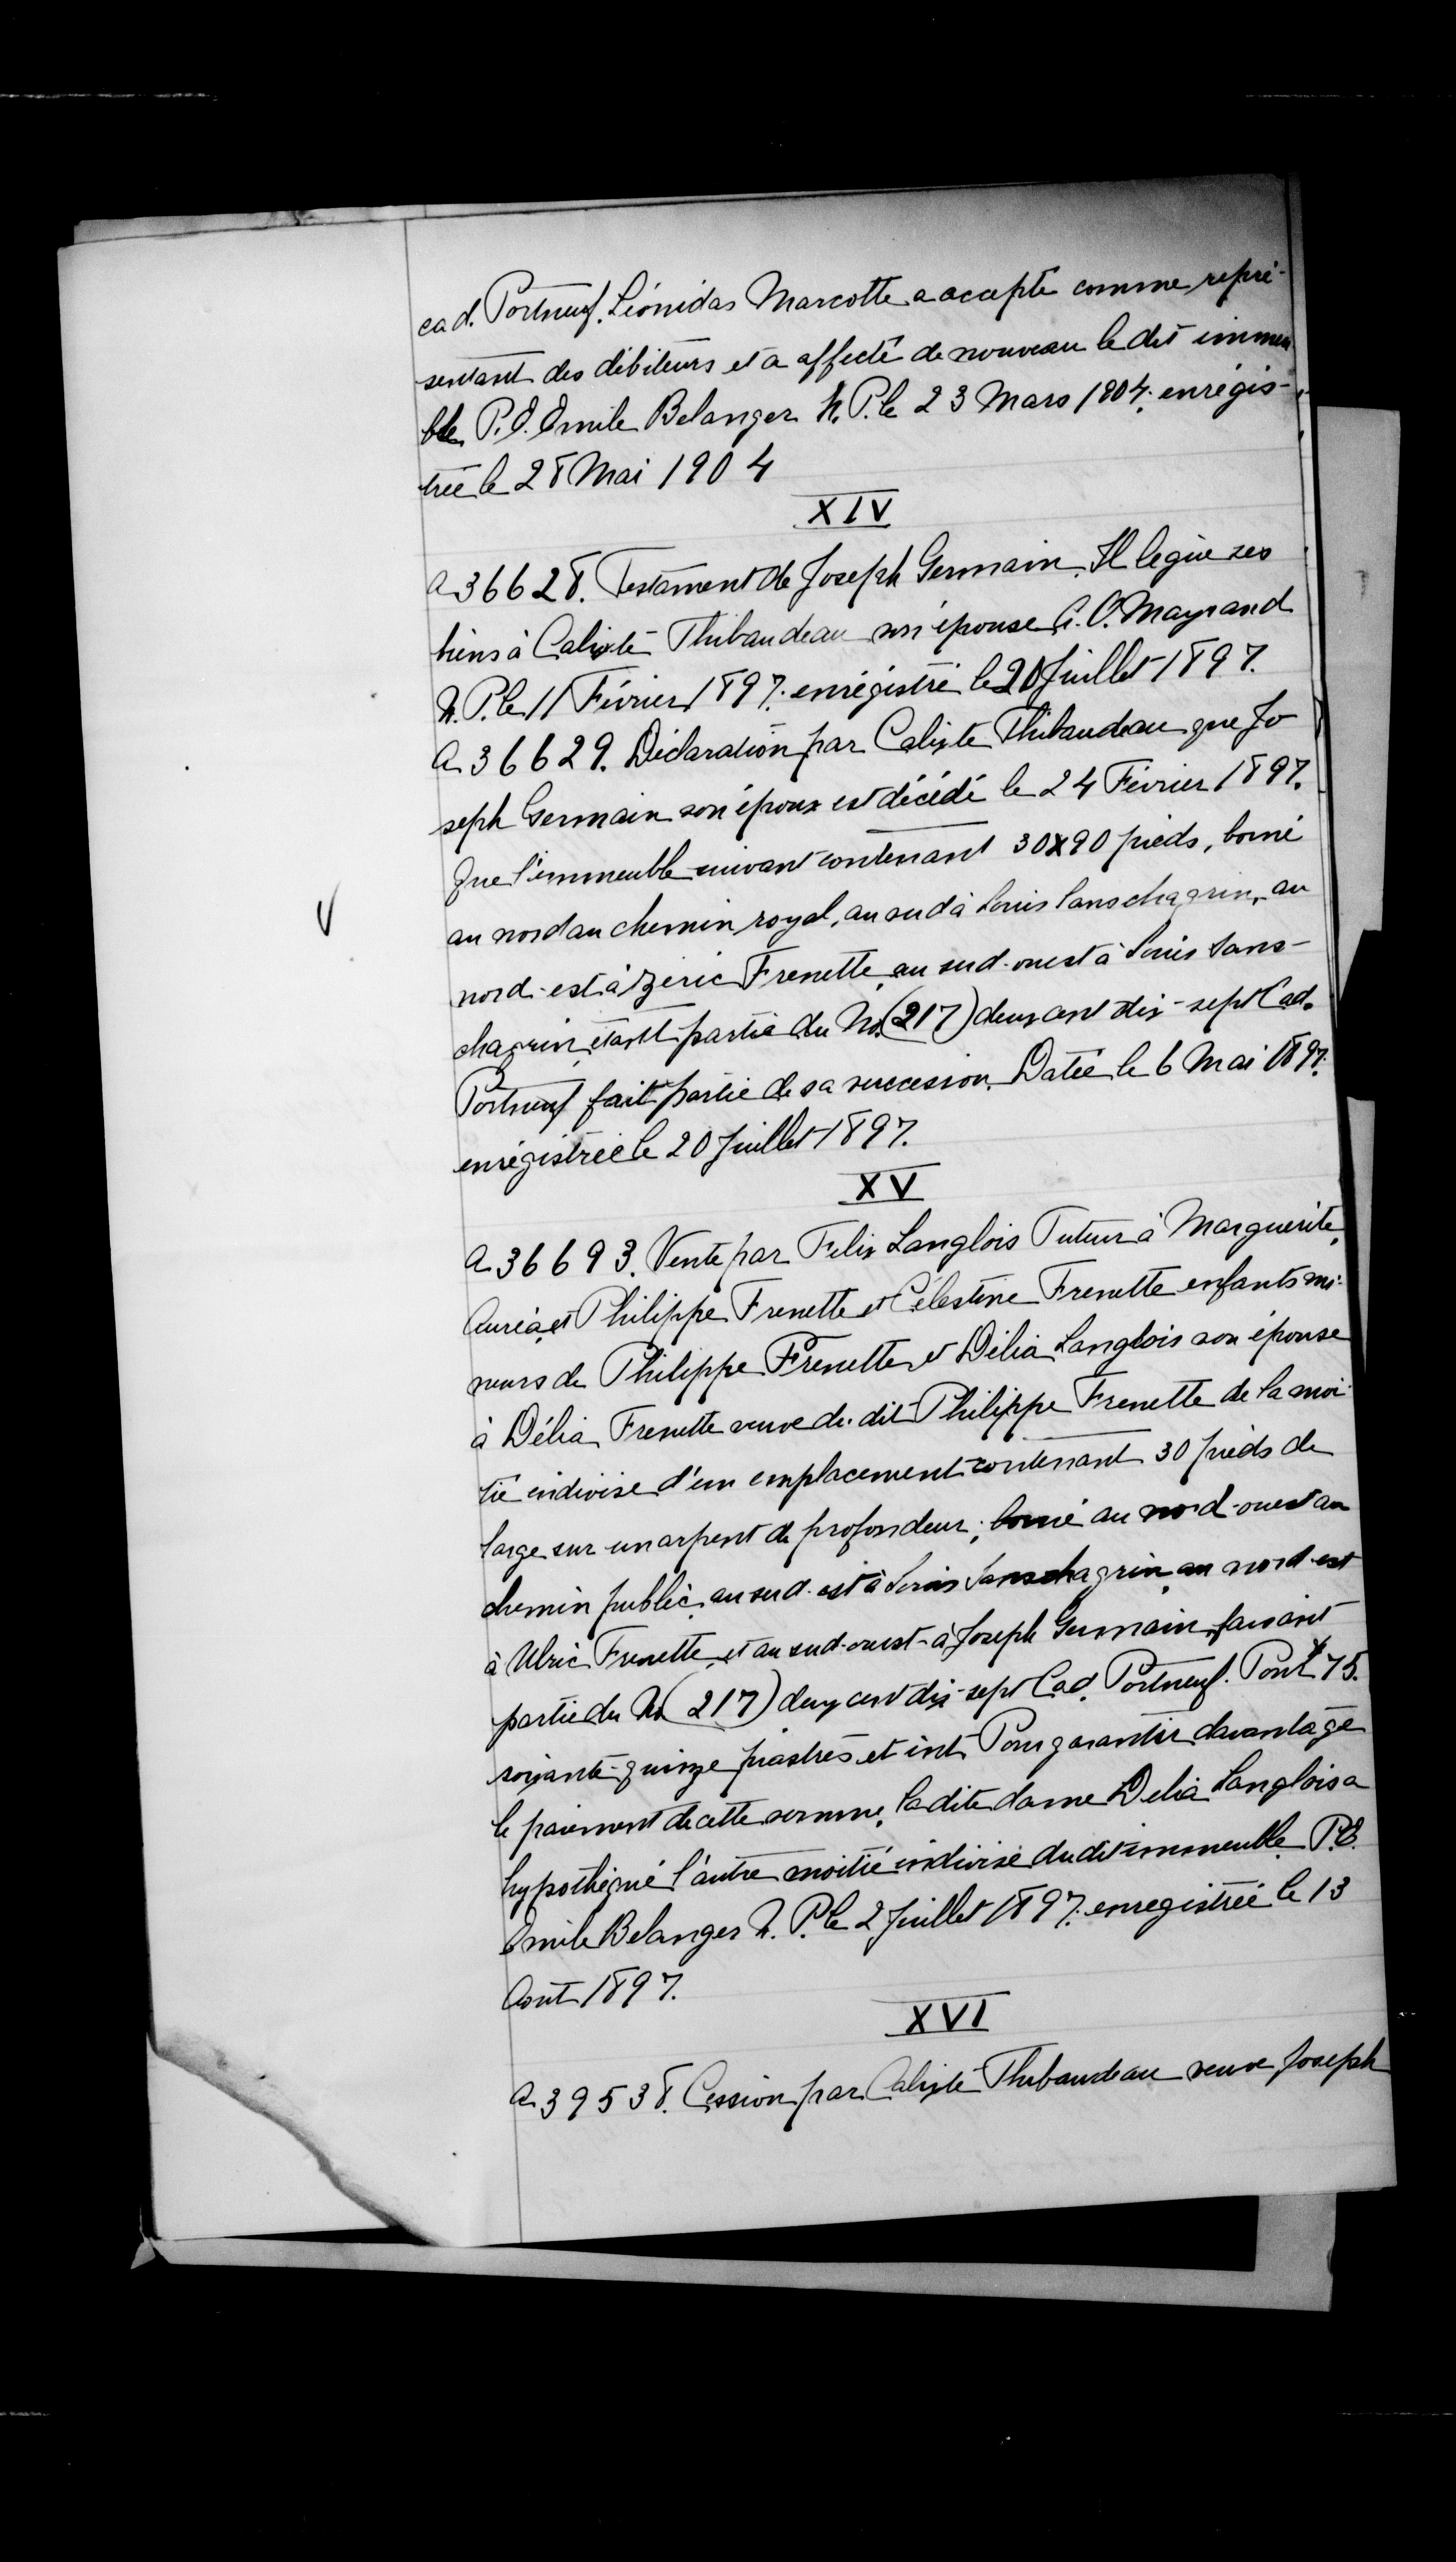 cad. Portneuf. Léonidas Marcotte a accepté comme repré-
sentant des débiteurs et a affecté de nouveau le dit immeu
ble. P. E. Emile Belanger N. P. le 23 Mars 1904. enrégis-
trée le 28 Mai 1904
XIV
A 36628. Testament de Joseph Germain. Il legue ses
biens à Calixte Thibaudeau son épouse G. O. Mayrand
N. P. le 11 Février 1897. enrégistré le 20 Juillet 1897.
A 36629. Déclaration par Calixte Thibaudeau que Jo
seph Germain son époux est décédé le 24 Février 1897.
Que l'immeuble suivant contenant 30x90 pieds, borné
au nord au chemin royal, au sud à Louis Sanschagrin, au
nord-est à Frenette, au sud-ouest à Louis Sans-
chagrin étant partie du No. (217) deux cent dix-sept Cad.
Portneuf fait partie de sa succession. Datée le 6 Mai 1897.
enrégistrée le 20 Juillet 1897.
XV
A 36693. Vente par Felix Langlois Tuteur à Marguerite,
Auréa, et Philippe Frenette et Célestine Frenette enfants mi-
neurs de Philippe Frenette et Délia Langlois son épouse
à Délia Frenette veuve du dit Philippe Frenette de la moi-
tié indivise d'un emplacement contenant 30 pieds de
large sur un arpent de profondeur; borné au nord-ouest au
chemin public, au sud-est à Louis Sanschagrin, au nord-est
à Ulric Frenette, et au sud-ouest à Joseph Germain, faisant
partie du No (217) deux cent dix-sept Cad. Portneuf. Pour $ 75.
soixante-quinze piastres et int. Pour garantir davantage
le paiement de cette somme, la dite dame Delia Langlois a
hypothéqué l'autre moitié indivise du dit immeuble. P. E.
Emile Belanger N. P. le 2 Juillet 1897. enregistrée le 13
Août 1897.
XVI
A 39538. Cession par Calixte Thibaudeau veuve Joseph